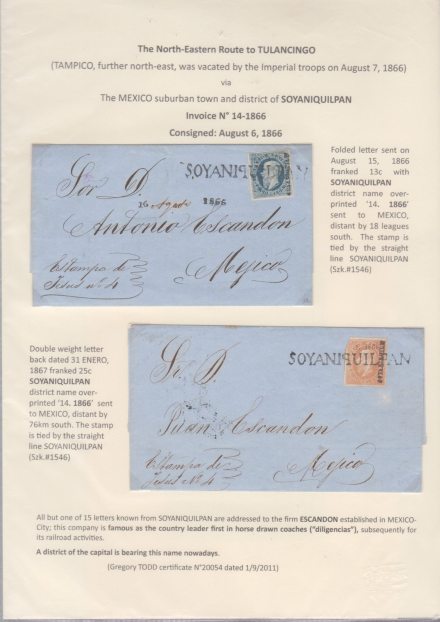 The North-Eastern Route to TULANCINGO
(TAMPICO, further north-east, was vacated by the Imperial troops on August 7, 1866)
via
The MEXICO suburban town and district of SOYANIQUILPAN
Invoice N° 14-1866
Consigned: August 6, 1866
Folded letter sent on
August 15, 1866
franked 13c with
SOYANIQUILPAN
district name over-
printed '14. 1866'
sent to MEXICO,
distant by 18 leagues
south. The stamp is
tied by the straight
line SOYANIQUILPAN
(Szk.#1546)
SOYANIQUILPAN
Sor D.
16 Agosto 1866
Antonio Escandon
Estampa de
Jesus no 4
Mejico
Double weight letter
back dated 31 ENERO,
1867 franked 25c
SOYANIQUILPAN
district name over-
printed '14. 1866' sent
to MEXICO, distant by
76km south. The stamp
is tied by the straight
line SOYANIQUILPAN
(Szk.#1546)
SOYANIQUILPAN
Sr. D.
Juan Escandon
Estampa de
Jesus No 4
Mejico
All but one of 15 letters known from SOYANIQUILPAN are addressed to the firm ESCANDON established in MEXICO-
City; this company is famous as the country leader first in horse drawn coaches ("diligencias"), subsequently for
its railroad activities.
A district of the capital is bearing this name nowadays.
(Gregory TODD certificate N°20054 dated 1/9/2011)